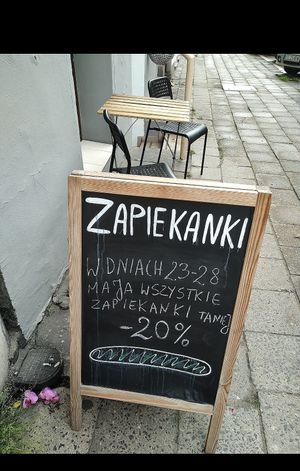 ZAPIEKANKI
W DNIACH 23-28
MAJA WSZYSTKIE
ZAPIEKANKI TANIEJ
-20%